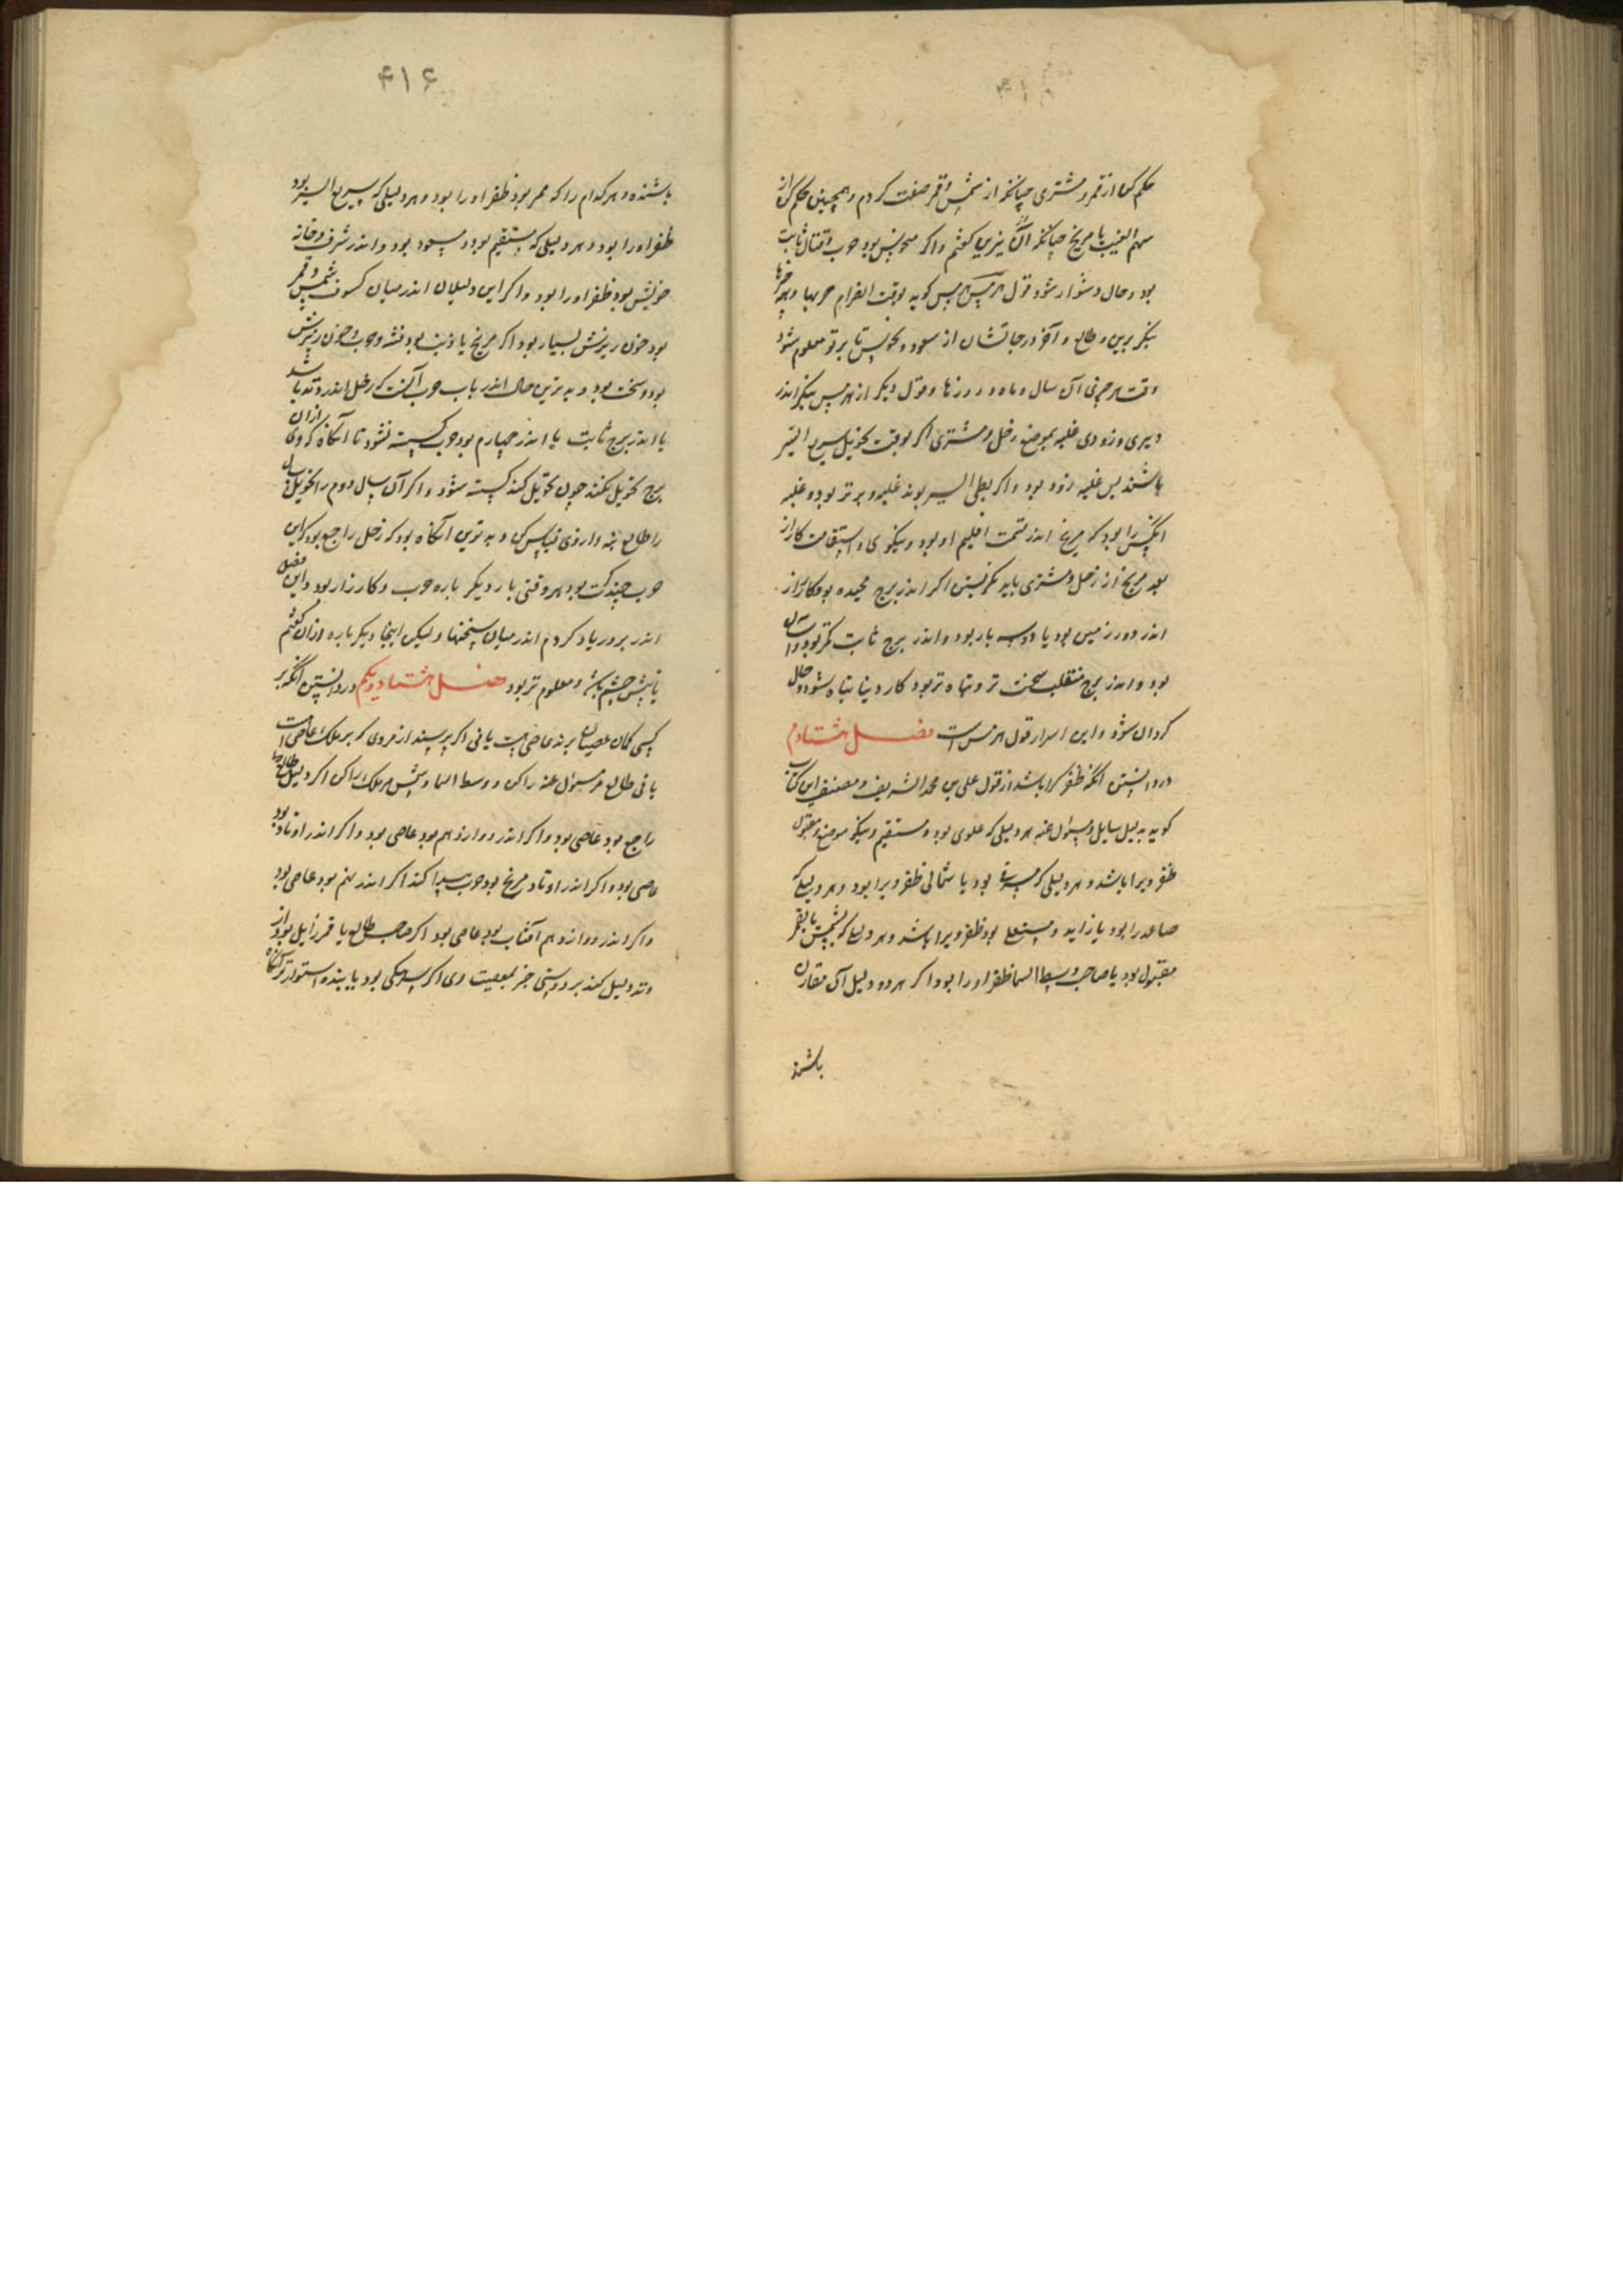 حکم کن از قمر و مشتری چنانکه از شمس و قمر صفت کردم و همچنین حکم کن از
سهم الغیب با مریخ چنانکه آن نیرین گفتم و اگر منحوس بود حرب و قتال ثابت
بود و حال دشوار شود قول هرمس هرمس گوید بوقت انصرام حربها و همه
بنگر برین و طالع و آخر درجاتشان از سعود و نحوس تا بر تو معلوم شود
وقت هر چیزی آن سال و ماه و روزها و قول دیگر از هرمس بنگر اندر
دیری و زودی غلبه بموضع زحل و مشتری اگر بوقت تحویل سریع السیر
باشند پس غلبه زود بود و اگر بطی السیر بوند غلبه دیرتر بود و غلبه
آنکس را بود که مریخ اندر قسمت اقلیم او بود و نیکوی و استقامت کار از
بعد مریخ از زحل و مشتری باید نگرستن اگر اندر برج مجسده بود کارزار
اندر دو زمین بود یا دو سه بار بود و اندر برج ثابت کمتر بود
بود و اندر برج منقلب سخت تر و تباه تر بود کار دنیا تباه شود و حال
گردان شود و این اسرار قول هرمس است فصل هشتادم
در دانستن آنکه ظفر کرا باشد از قول علی بن محمد الشریف و مصنف این کتاب
گوید به دلیل سایل و مسؤل عنه هر دلیلی که علوی بود و مستقیم و نیکو موضع و مقبول
ظفر ویرا باشد و هر دلیلی که مشرقی بود یا شمالی ظفر ویرا بود و هر دلیلی که
صاعد را بود یا زاید و مستعلی بود ظفر ویرا باشد و هر دلیلی که بشمس یا بقمر
مقبول بود یا صاحب وسط السما ظفر او را بود اگر هر دو دلیل آن مقارن
باشند
۴۱۶
باشند و هر کدام را که ممر بود ظفر او را بود و هر دلیلی که سریع السیر بود
ظفر او را بود و هر دلیلی که مستقیم بود و مسعود بود و اندر شرف و خانه
خویش بود ظفر او را بود و اگر این دلیلان اندر میان کسوف شمس و قمر
بود خون ریزش بسیار بود اگر مریخ با ذنب بود فتنه و حرب و خون ریزش
بود و سخت بود و بدترین حال اندر باب حرب آنست که زحل اندر وتد باشد
یا اندر برج ثابت یا اندر چهارم بود حرب گسسته نشود تا آنگاه که وی از آن
برج تحویل نکند چون تحویل کند گسسته شود و اگر آن سال دوم را تحویل سال
را طالع بنه و از وی قیاس کن و بدترین آنگاه بود که زحل راجع بود که این
حرب چند کت بود هر وقتی بار دیگر باره حرب و کارزار بود و این فصل
اندر بروز یاد کردم اندر میان سخنها ولیکن اینجا دیگر باره از آن گفتم
تا پیش چشم باشد و معلوم تر بود فصل هشتاد و یکم در دانستن آنکه بر
کسی گمان عصیان برند عاصی است یا نی اگر پرسند از مردی که بر ملک عاصی است
یا نی طالع مر مسؤل عنه را کن و وسط السما و شمس مر ملک را کن اگر دلیل طالع
راجع بود عاصی بود و اگر اندر دوازدهم بود عاصی بود و اگر اندر اوتاد بود
عاصی بود و اگر اندر اوتاد مریخ بود حرب پیدا کند اگر اندر نهم بود عاصی بود
و اگر اندر دوازدهم آفتاب بود عاصی بود اگر صاحب طالع یا قمر زایل بود از
وتد دلیل کند بر دوستی جز بمعصیت وی اگر